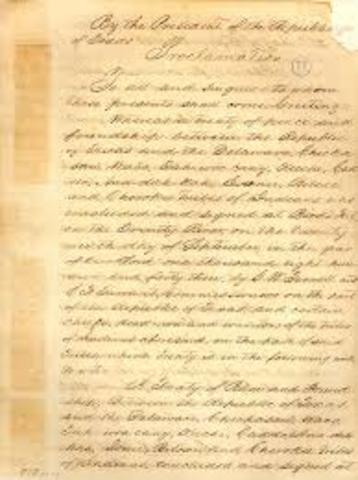 By the President of the Republic
of Texas
Proclamation
To all and singular to whom
these presents shall come Greeting
Whereas a treaty of peace and
friendship between the Republic
of Texas and the Delaware, Chicka
saw, Waco, Tah-wo-cany, Keechi, Cad
do, Ana-dah-kah, Ionie, Biloxi
and Cherokee tribes of Indians was
concluded and signed at Bird's Fort
on the Trinity River on the twenty
ninth day of September, in the year
of our Lord one thousand eight hun
dred and forty three, by G. W. Terrell and
E. H. Tarrant, Commissioners on the part
of the Republic of Texas and certain
chiefs, head men and warriors of the tribes
of Indians aforesaid, on the part of said
tribes, which treaty is in the following words
to wit
A Treaty of Peace and Friend
ship, Between the Republic of Texas
and the Delaware, Chickasaw, Waco,
Tah-wo-cany, Keechi, Caddo, Ana-dah-
kah, Ionie, Biloxi, and Cherokee tribes
of Indians, concluded and signed at